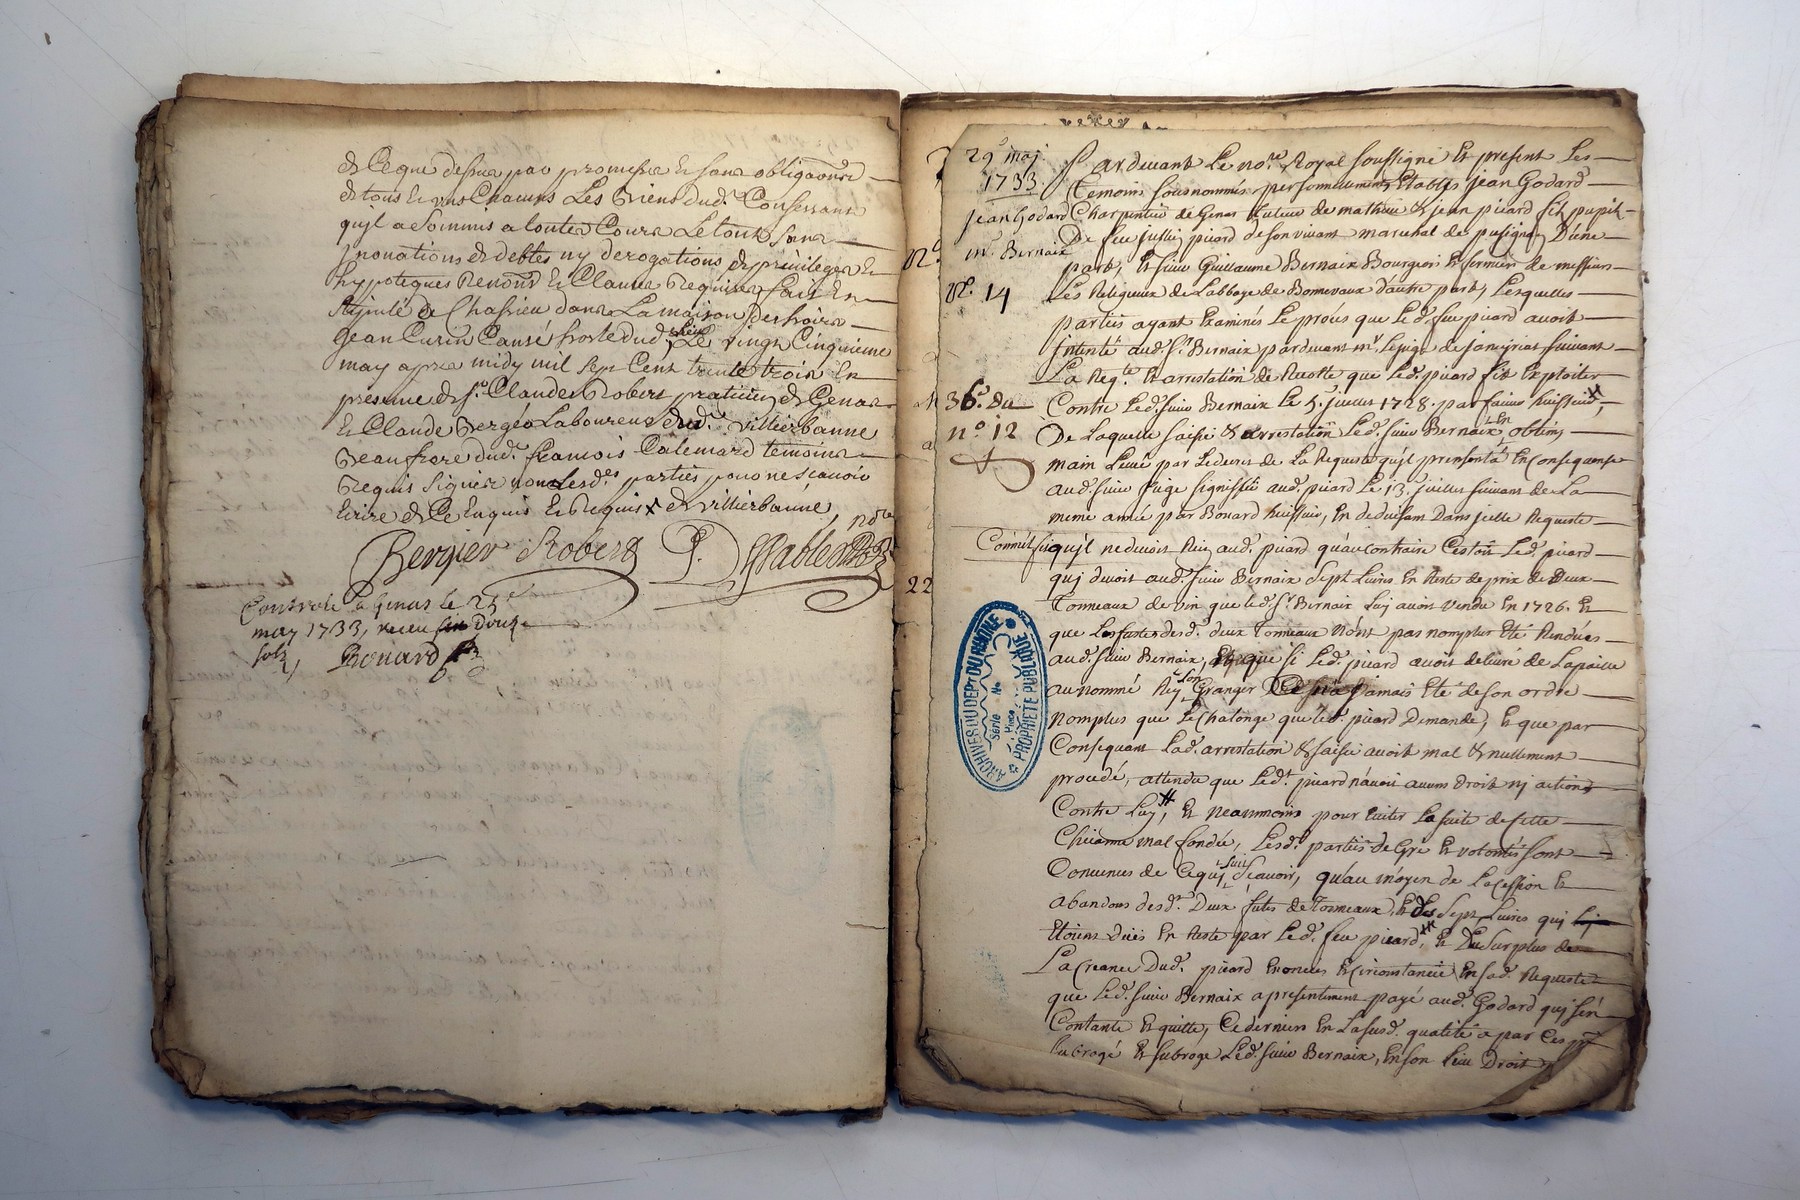 et Ce que dessus par promesse et sous obligaons
et tous et uns Chacuns Les Biens dud. Confessant
qu'jl a Soûmis a toutes Cours Le tout sans
jnovations de debtes ny derogations de privileges et
hypoteques Renons. Et Clauses Requises fait En
de Chassieu dans La maison des hoirs
jean Curin Le vingt Cinquieme
may apres midy mil sept Cent trente trois En
presence de sr. Claude Robert praticien de Genas
Et Claude Bergér Laboureur de Villierbanne
Beaufrere dud. françois Calemard temoins
Requis signer non lesd. parties pour ne sçavoir
Ecrire de Ce Enquis Et Requis de villierbanne,
Bergier Robert
Controlé a Genas le 25e
may 1733, receu douze
sols Bonard
29e maj
1733
jean Godard
mr. Bernaix
14
36e. 8a
no. 12
22
Par devant Le nore. Royal soussigné Et present Les
temoins sousnommés personnellement Etablis jean Godard
Charpentier de Genas tuteur de mathieu & jean picard fils pupils
De feu justin picard de son vivant marechal de pusignan D'une
part, Et sieur Guillaume Bernaix Bourgeois Et fermier de messieurs
Les Religieux de Labbaye de Bonnevaux d'autre part, Lesquelles
parties ayant Examinés Le proces que Led. feu picard avoit
jntenté aud. Sr. Bernaix pardevant mr. Lejuge de janeyriat suivant
La Reqte. Et arrestation de Recolte que Led. picard fit Exploiter
Contre Led. sieur Bernaix Le 5. juillet 1728. par huissier,
De Laquelle saisie & arrestation Led. sieur Bernaix En obtint
main Levée par Ledecret de La Requeste qu'jl presenta En Consequence
aud. sieur juge signiffié aud. picard Le 13. juillet suivant de La
meme année par Bonard huissier, En deduisant Dans jcelle Requeste
qu'jl ne devoit Rien aud. picard qu'au contraire C'estoit Led. picard
quj devoit aud. sieur Bernaix sept Livres En Reste de prix de Deux
Tonneaux de vin que led. Sr. Bernaix Luy avoit vendu En 1726. Et
que Les futes desd. deux Tonneaux n'ont pas nomplus Eté Rendües
aud. sieur Bernaix, Et que si Led. picard avoit delivré de La paille
au nommé Rey son Granger Ce n'a jamais Eté de son ordre
nomplus que Le Chalonge que led. picard Demande, Et que par
Consequant Lad. arrestation & saisie avoit mal & nullement
procedé, attendu que Led. picard n'avoit aucuns Droits nj actions
Contre Luy, Et neanmoins pour Eviter La suite de cette
mal fondée, Lesd. parties de Gré Et volonté sont
Convenues de Ce quj suit sçavoir, qu'au moyen de La Cession Et
abandons desd. Deux futes de Tonneaux, Et des sept Livres qui
Etoient dües En Reste par Led. feu picard, Et Du surplus de
La Creance Dud. picard Enoncée Et Circonstanciée En sad. Requeste
que Led. sieur Bernaix a presentement payé aud. Godard quj s'en
Contante Et quitte, Ce dernier En La susd. qualité a par Ces
subrogé Et subroge Led. sieur Bernaix, En son Lieu Droit
ARCHIVES DU DEPT DU RHÔNE
Série No
PROPRIÉTÉ PUBLIQUE